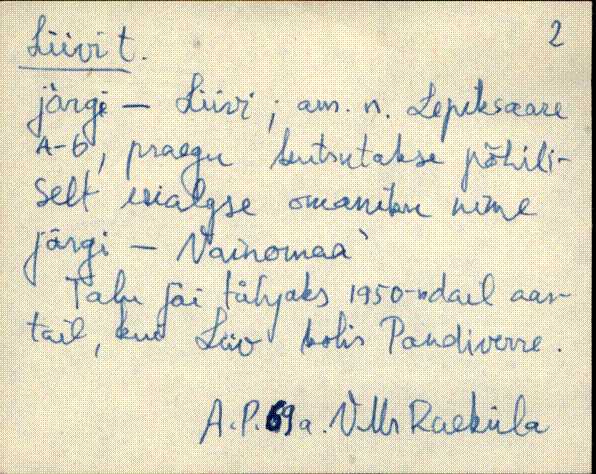 Liivi t. 2
järgi – Liivi; am. n. Lepiksaare
A-6, praegu kutsutakse põhili-
selt esialgse omaniku nime
järgi – Vainomaa`
Talu jäi tühjaks 1950-ndail aas-
tail, kui Liiv kolis Pandiverre.
A.P. 69 a. VMr Raeküla